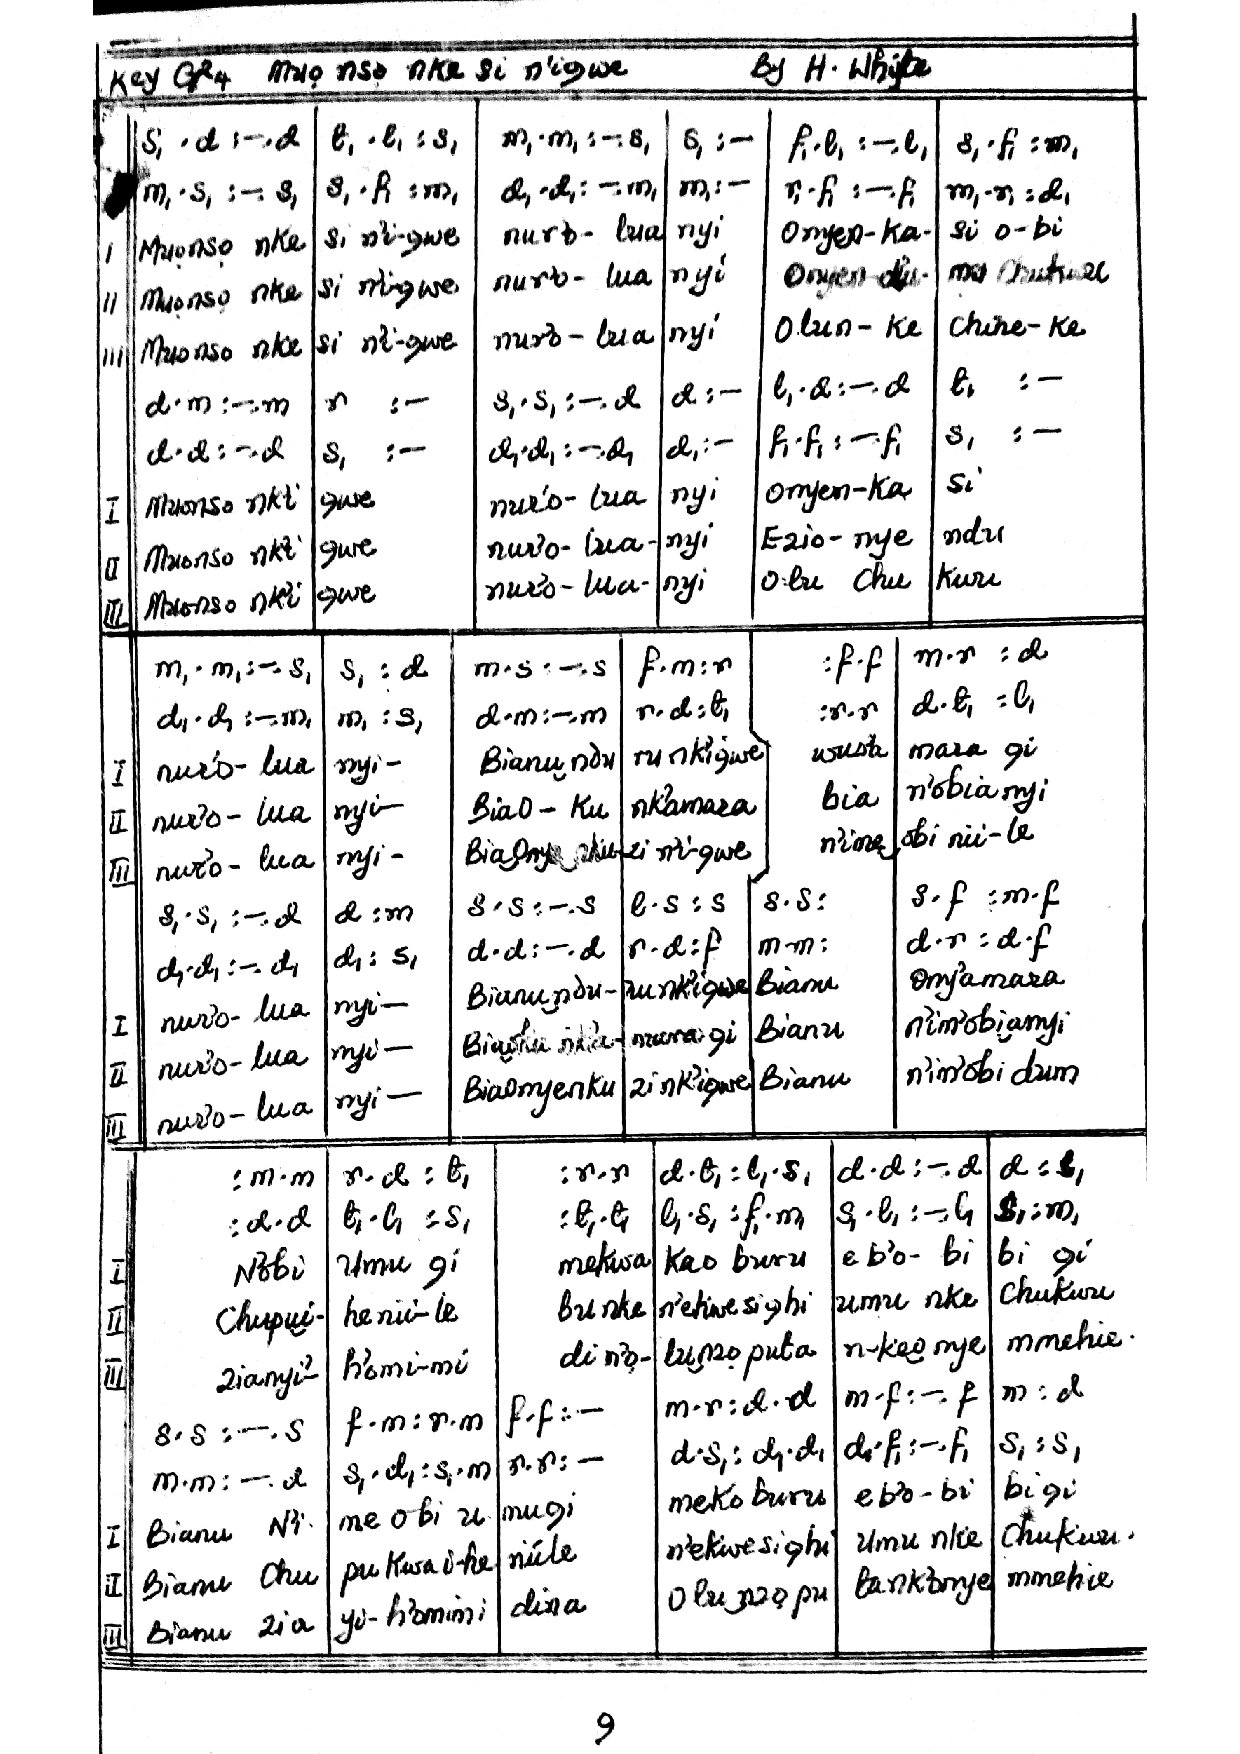 Key G 2/4 Mụọ nsọ nke si n'igwe By H. Whyte
S₁ .d :-.d | t₁ .l₁ :s₁ | m₁.m₁:-.s₁ | s₁ :- | f₁.l₁ :-.l₁ | s₁.f₁ :m₁
m₁.s₁ :-.s₁ | s₁.f₁ :m₁ | d₁.d₁:-.m₁ | m₁:- | r₁.f₁ :-.f₁ | m₁.r₁ :d₁
I Mụọnsọ nke | si n'i-gwe | nurò- lua | nyi | Onyen-ka- | si o-bi
II Mụọnsọ nke | si n'i-gwe | nurò- lua | nyí | Onyen
III Mụonso nke | si n'i-gwe | nurò- lua | nyí | Olun-ke | Chine-ke
d.m :-.m | r :- | s₁.s₁ :-.d | d :- | l₁.d :-.d | t₁ :-
d.d :-.d | s₁ :- | d₁.d₁ :-.d₁ | d₁:- | f₁.f₁ :-.f₁ | s₁ :-
I Mụonso nk'i | gwe | nur'o- lua | nyi | onyen-ka | si
II Mụonso nk'i | gwe | nur'o- lua- | nyi | Ezio-nye | ndu
III Mụonso nk'i | gwe | nur'o- lua- | nyi | Olu Chu | kwu
m₁.m₁:-.s₁ | s₁ : d | m.s :-.s | f.m:r | :f.f | m.r :d
d₁.d₁ :-.m₁ | m₁ :s₁ | d.m:-.m | r.d:t₁ | :r.r | d.t₁ :l₁
I nur'o- lua | nyi- | Bianụ ndu | ru nk'igwe | wusa | mara gi
II nur'o- lua | nyi- | Biao-ku | nk'amara | bia | n'obianyi
III nur'o- lua | nyi- | zi n'i-gwe | n'ime | obi nii-le
s₁.s₁ :-.d | d :m | s.s :-.s | l.s :s | s.s: | s.f :m.f
d₁.d₁ :-.d₁ | d₁: s₁ | d.d:-.d | r.d:f | m.m: | d.r :d.f
I nur'o- lua | nyi- | Bianụ ndu- | runk'igwe | Bianu | Ony'amara
II nur'o- lua | nyi- | mara gi | Bianu | n'im'obianyi
III nur'o- lua | nyi- | Biaonyenku | zi nk'igwe | Bianu | n'im'obi dum
:m.m | r.d :t₁ | :r.r | d.t₁ :l₁.s₁ | d.d :-.d | d :t₁
:d.d | t₁.l₁ :s₁ | :t₁.t₁ | l₁.s₁ :f₁.m₁ | s₁.l₁ :-.l₁ | s₁:m₁
I N'obi | umu gi | mekwa | kao buru | eb'o-bi | bi gi
II Chupụi- | he nii-le | bu nke | n'ekwesighi | umu nke | Chukwu
III zianyi- | h'omi-mi | di n'o- | luzọputa | n-keọnye | mmehie.
s.s :-.s | f.m :r.m | f.f :- | m.r :d.d | m.f :-.f | m : d
m.m: -.d | s₁.d₁ :s₁.m | r.r: - | d.s₁: d₁.d₁ | d₁.f₁:-.f₁ | s₁ :s₁
I Bianu N'i | me obi u | mugi | meko buru | eb'o-bi | bi gi
II Bianu Chu | pu kwa i-he | niile | n'ekwesighi | umu nke | Chukwu.
III Bianu zia | yi-h'omimi | dina | Olu nzọpu | tank'onye | mmehie
9